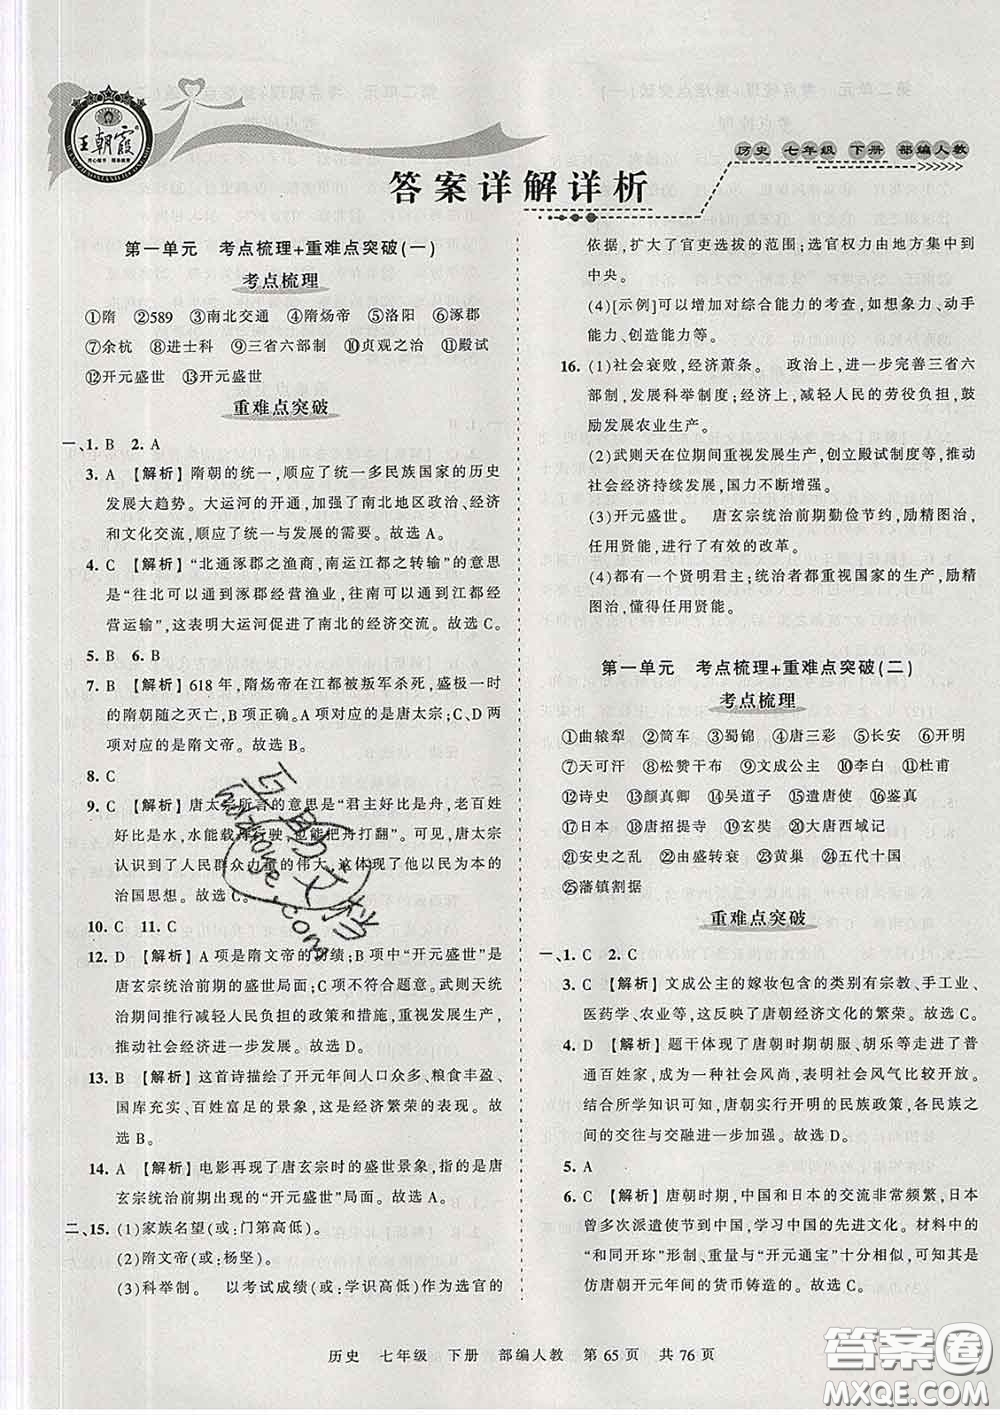 王朝霞
历史 七年级 下册 部编人教
答案详解详析
第一单元 考点梳理+重难点突破(一)
考点梳理
①隋 ②589 ③南北交通 ④隋炀帝 ⑤洛阳 ⑥涿郡
⑦余杭 ⑧进士科 ⑨三省六部制 ⑩贞观之治 ⑪殿试
⑫开元盛世 ⑬开元盛世
重难点突破
一、1. B 2. A
3. A 【解析】隋朝的统一，顺应了统一多民族国家的历史
发展大趋势。大运河的开通，加强了南北地区政治、经济
和文化交流，顺应了统一与发展的需要。故选A。
4. C 【解析】“北通涿郡之渔商，南运江都之转输”的意思
是“往北可以通到涿郡经营渔业，往南可以通到江都经
营运输”，这表明大运河促进了南北的经济交流。故选C。
5. B 6. B
7. B 【解析】618年，隋炀帝在江都被叛军杀死，盛极一时
的隋朝随之灭亡，B项正确。A项对应的是唐太宗；C、D两
项对应的是隋文帝。故选B。
8. C
9. C 【解析】唐太宗所言的意思是“君主好比是舟，老百姓
好比是水，水能载舟行驶，也能把舟打翻”。可见，唐太宗
认识到了人民群众力量的伟大，这体现了他以民为本的
治国思想。故选C。
10. C 11. C
12. D 【解析】A项是隋文帝的功绩；B项中“开元盛世”是
唐玄宗统治前期的盛世局面；C项不符合题意。武则天统
治时期推行减轻人民负担的政策和措施，重视发展生产，
推动社会经济进一步发展。故选D。
13. B 【解析】这首诗描绘了开元年间人口众多、粮食丰盈、
国库充实、百姓富足的景象，这是经济繁荣的表现。故
选B。
14. A 【解析】电影再现了唐玄宗时的盛世景象，指的是唐
玄宗统治前期出现的“开元盛世”局面。故选A。
二、15. (1)家族名望(或：门第高低)。
(2)隋文帝(或：杨坚)。
(3)科举制。 以考试成绩(或：学识高低)作为选官的
依据，扩大了官吏选拔的范围；选官权力由地方集中到
中央。
(4)[示例]可以增加对综合能力的考查，如想象力、动手
能力、创造能力等。
16. (1)社会衰败，经济萧条。 政治上，进一步完善三省六
部制，发展科举制度；经济上，减轻人民的劳役负担，鼓
励发展农业生产。
(2)武则天在位期间重视发展生产，创立殿试制度等，推动
社会经济持续发展，国力不断增强。
(3)开元盛世。 唐玄宗统治前期勤俭节约，励精图治，
任用贤能，进行了有效的改革。
(4)都有一个贤明君主；统治者都重视国家的生产，励精
图治，懂得任用贤能。
第一单元 考点梳理+重难点突破(二)
考点梳理
①曲辕犁 ②筒车 ③蜀锦 ④唐三彩 ⑤长安 ⑥开明
⑦天可汗 ⑧松赞干布 ⑨文成公主 ⑩李白 ⑪杜甫
⑫诗史 ⑬颜真卿 ⑭吴道子 ⑮遣唐使 ⑯鉴真
⑰日本 ⑱唐招提寺 ⑲玄奘 ⑳大唐西域记
㉑安史之乱 ㉒由盛转衰 ㉓黄巢 ㉔五代十国
㉕藩镇割据
重难点突破
一、1. C 2. C
3. C 【解析】文成公主的嫁妆包含的类别有宗教、手工业、
医药学、农业等，这反映了唐朝经济文化的繁荣。故选C。
4. D 【解析】题干体现了唐朝时期胡服、胡乐等走进了普
通百姓家，成为一种社会风尚，表明社会风气比较开放。
结合所学知识可知，唐朝实行开明的民族政策，各民族之
间的交往与交融进一步加强。故选D。
5. A
6. C 【解析】唐朝时期，中国和日本的交流非常频繁，日本
曾多次派遣使节到中国，学习中国的先进文化。材料中的
“和同开珎”形制、重量与“开元通宝”十分相似，可见其是
仿唐朝开元年间的货币铸造的。故选C。
历史 七年级 下册 部编人教 第65页 共76页
答案圈
MXQE.COM